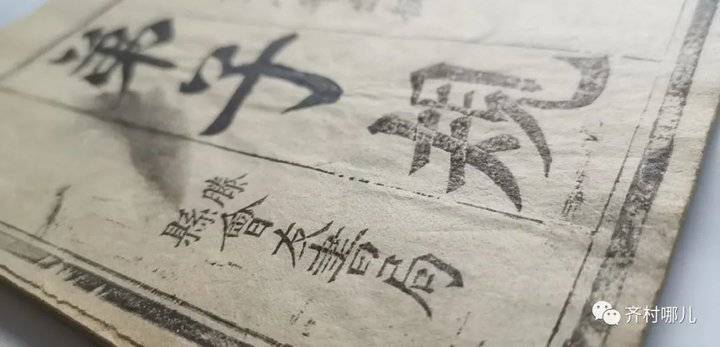 弟子規
滕縣會書局
齐村哪儿